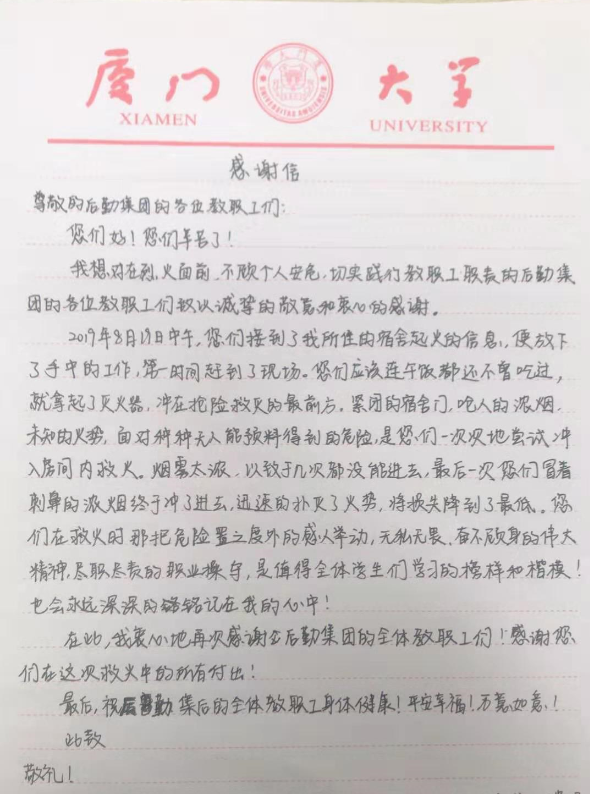 厦门 大学
XIAMEN UNIVERSITY
感谢信
尊敬的后勤集团的各位教职工们:
您们好!您们辛苦了!
我想对在烈火面前、不顾个人安危、切实践行教职工职责的后勤集
团的各位教职工们致以诚挚的敬意和衷心的感谢。
2019年8月19日中午,您们接到了我所住的宿舍起火的信息,便放下
了手中的工作,第一时间赶到了现场。您们应该连午饭都还不曾吃过,
就拿起了灭火器,冲在抢险救灭的最前方。紧闭的宿舍门,呛人的浓烟、
未知的火势,面对种种无人能预料得到的危险,是您们一次次地尝试冲
入房间内救火。烟雾太浓,以致于几次都没能进去,最后一次您们冒着
刺鼻的浓烟终于冲了进去,迅速的扑灭了火势,将损失降到了最低。您
们在救火时那把危险置之度外的感人举动,无私无畏、奋不顾身的伟大
精神,尽职尽责的职业操守,是值得全体学生们学习的榜样和楷模!
也会永远深深的铭记在我的心中!
在此,我衷心地再次感谢后勤集团的全体教职工们!感谢您
们在这次救火中的所有付出!
最后,祝后勤集团的全体教职工身体健康!平安幸福!万事如意!
此致
敬礼!